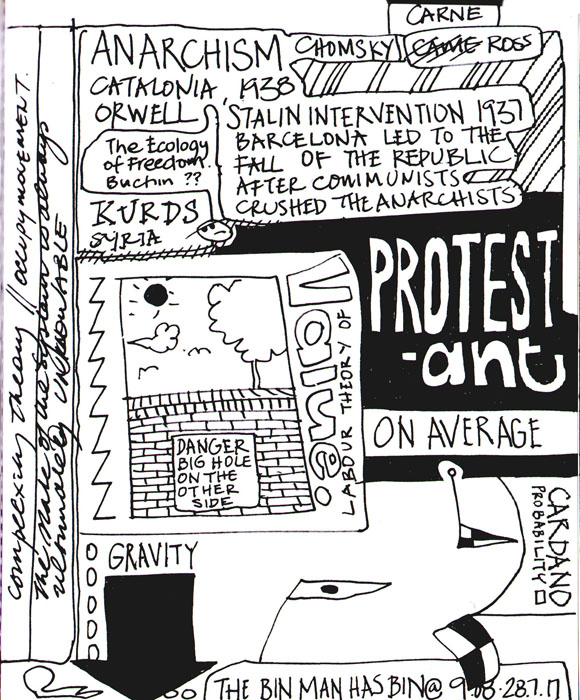 CARNE
ANARCHISM
CHOMSKY
ROSS
CATALONIA, 1938
ORWELL
STALIN INTERVENTION 1937
BARCELONA LED TO THE
FALL OF THE REPUBLIC
AFTER COMMUNISTS
CRUSHED THE ANARCHISTS
The Ecology
of Freedom.
Buchin ??
KURDS
SYRIA
PROTEST
-ant
ON AVERAGE
Value.
LABOUR THEORY OF
DANGER
BIG HOLE
ON THE
OTHER
SIDE
CARDANO
PROBABILITY
GRAVITY
complexity theory // occupy movement.
the state of the system is always
ultimately UNKNOWABLE
THE BIN MAN HAS BIN@ 9.08-28.7.17